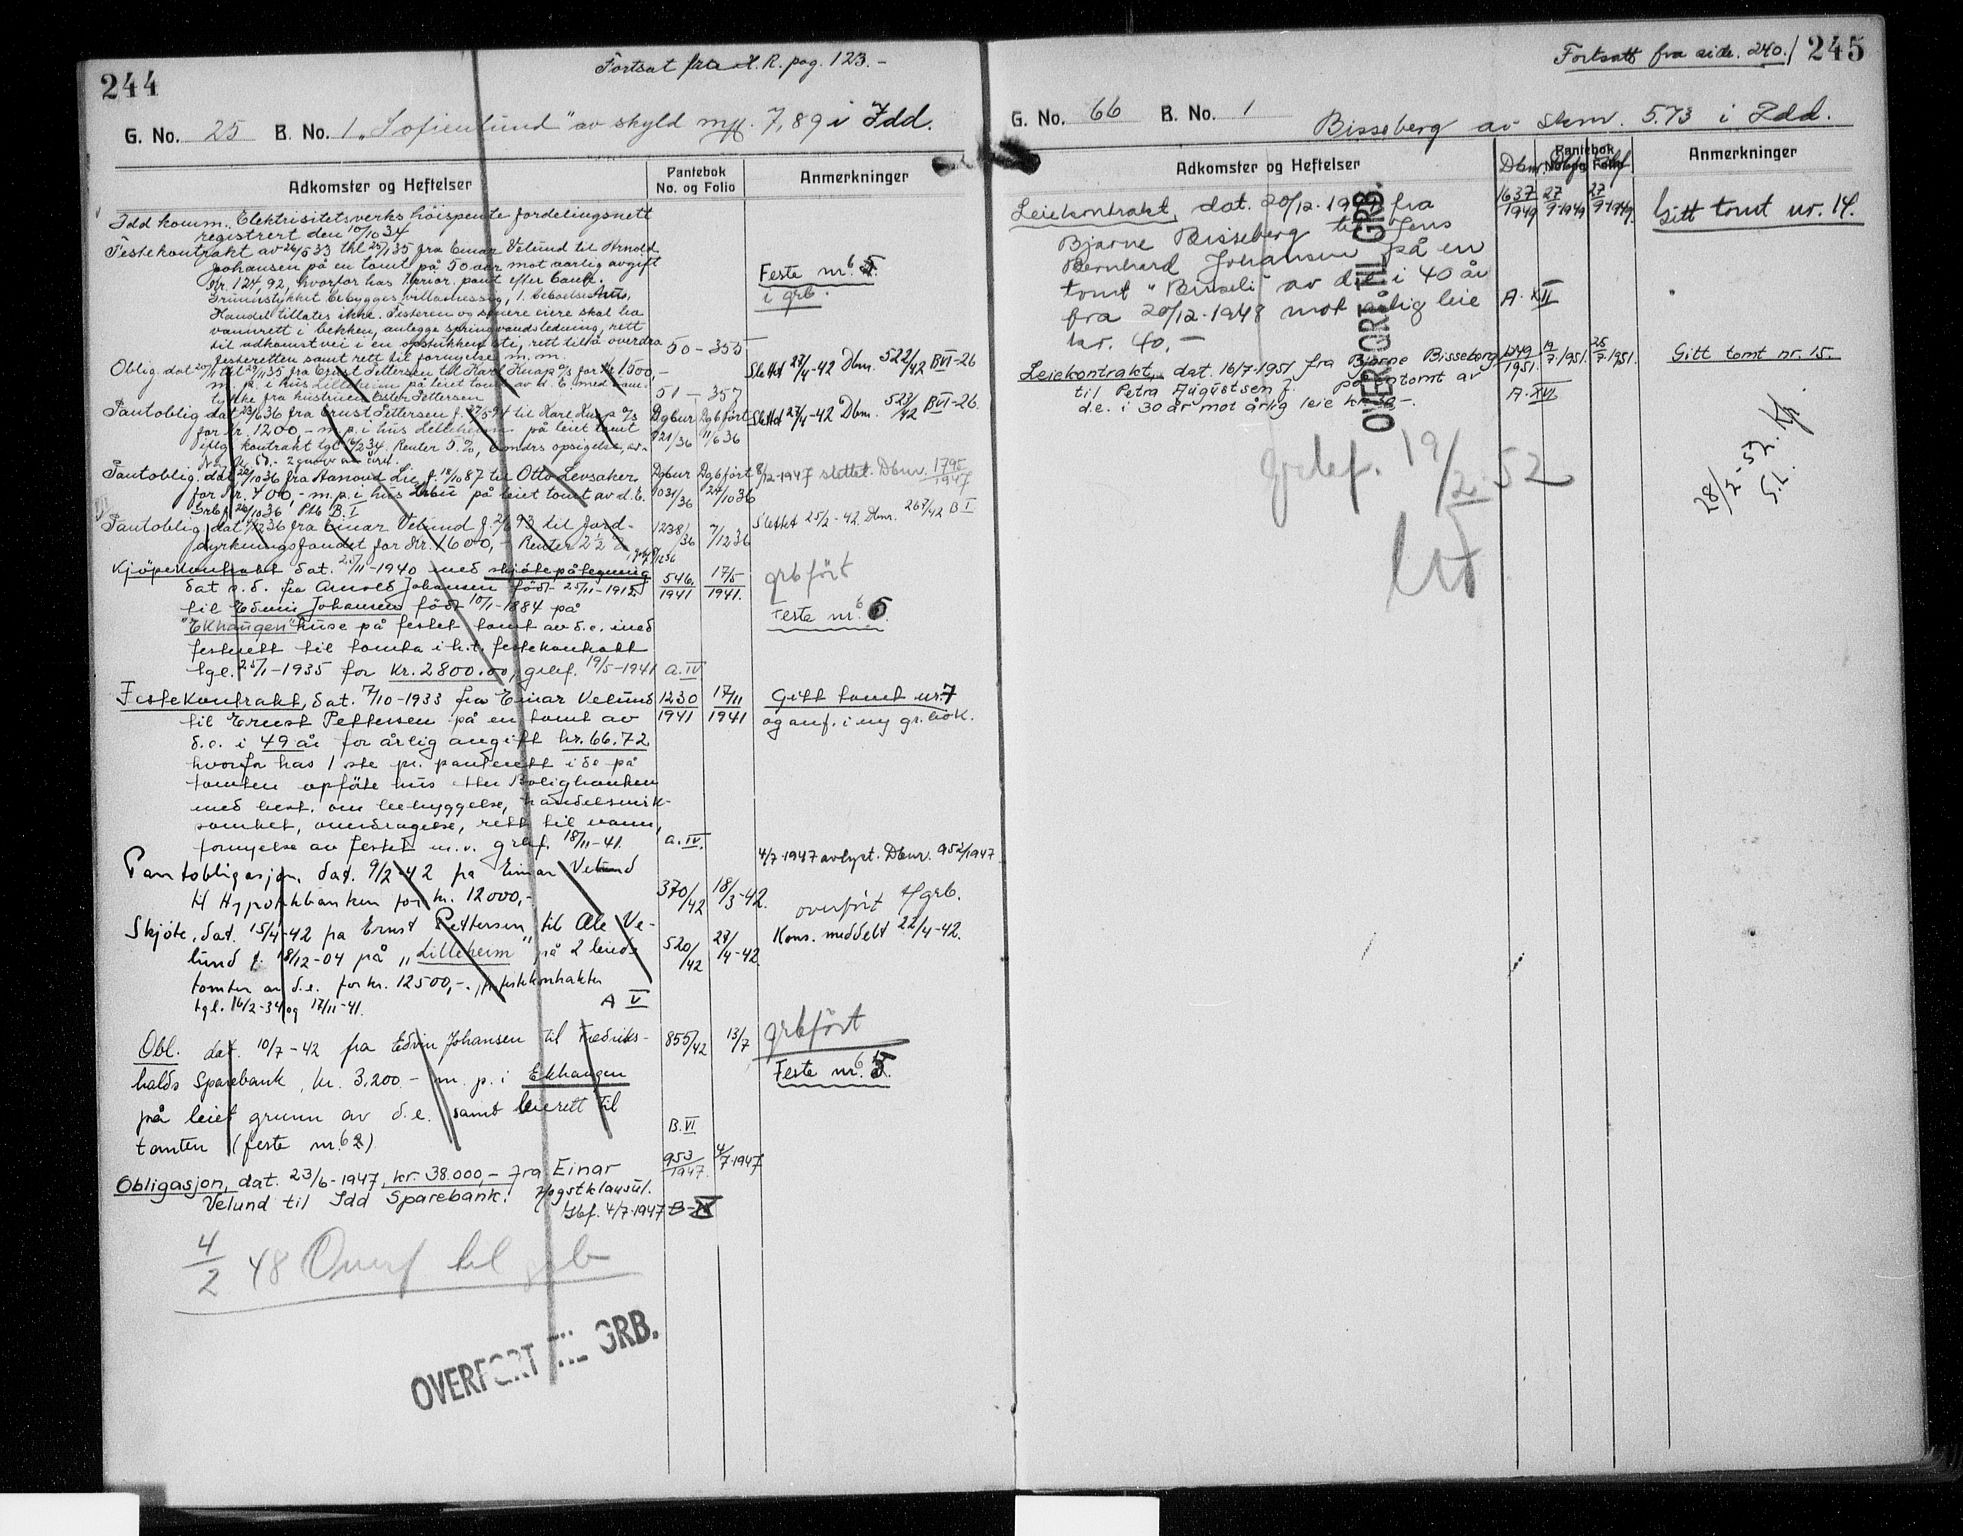 244
Fortsat fra R. pag. 123.-
G. No. 25 B. No. 1 „Sofienlund" av skyld mk. 7,89 i Idd.
Adkomster og Heftelser
Pantebok
No. og Folio
Anmerkninger
Idd komm. Elektrisitetsverks höispente fordelingsnett
registrert den 10/10 34
Festekontrakt av 26/5 33 thl 25/1 35 fra Einar Velund til Arnold
Johansen på en tomt på 50 aar mot aarlig avgift
Kr. 124,92, hvorfor has 1 prior. pant efter bank.
Grunnstykket bebygges villamessig, 1. beboelseshus,
Handel tillates ikke. Festeren og senere eiere skal ha
vannrett i bekken, anlegge springvandsledning, rett
til adkomstvei i en opstukken sti, rett til å overdra
festeretten samt rett til fornyelse m. m.
50 - 355
Feste nr. 6 5
i grb.
Oblig. dat 20/11 thl 29/11 35 fra Ernst Pettersen til Karl Knap A/s for kr 1500,-
m. p. i hus Lilleheim på leiet tomt av d. E. med sam-
tykke fra hustruen Ester Pettersen
51 - 357
Slettet 27/4-42 Dbnr. 522/42 BVI-26
Pantoblig dat 23/6 36 fra Ernst Pettersen f. 27/5 94 til Karl Knap A/s
for kr. 1200 - m. p. i hus Lilleheim på leiet tomt
iflg kontrakt tgl 16/2 34. Renter 5 %, 6 mndrs opsigelse, av-
Dgbnr Dgbført
721/36 11/6 36
Slettet 27/4-42 Dbnr. 523/42 BVI-26.
Pantoblig. dat 22/10 36 fra Aamund Lie f. 18/10 87 til Otto Levsaker
for Kr. 400,- m. p. i hus Lebu på leiet tomt av d. E.
Grbf 26/10 36 Ptb B. I
Dgbnr Dgbført
1031/36 24/10 36
8/12-1947 slettet. Dbnr. 1795/1947
Pantoblig dat 4/12 36 fra Einar Velund f. 2/6 93 til Jord-
dyrkningsfondet for Kr. 1600,- Renter 2½ %
1238/36 7/12 36
Slettet 25/2-42. Dbnr. 267/42 B I
Kjöpekontrakt dat. 25/11-1940 med skjötepåtegning
dat s. d. fra Arnold Johansen födt 25/11-1912
til Edvin Johansen födt 10/1-1884 på
"Ekhaugen" huse på festet tomt av d.e. med
festerett til tomta i h.t. festekontrakt
tgl. 25/1-1935 for kr. 2800.00, grbf. 19/5-1941
546/1941 17/5 1941.
A. IV
grbfört
Feste nr. 6 5
Festekontrakt, dat. 7/10-1933 fra Einar Velund
til Ernst Pettersen på en tomt av
d.e. i 49 år for årlig avgift kr. 66.72
hvorfor has 1 ste pr. panterett i de på
tomten opförte hus etter Boligbanken
med best. om bebyggelse, handelsvirk-
somhet, overdragelse, rett til vann,
fornyelse av festet m.v. grbf. 18/11-41.
1230/1941 17/11 1941
A. IV.
Gitt tomt nr. 7
og anf. i ny gr.bok.
Pantobligasjon, dat. 9/2-42 fra Einar Velund
til Hypotekbanken for kr. 12000,-
370/42 18/3-42.
4/7-1947 avlyst. Dbnr. 952/1947
overfört til grb.
Skjöte, dat. 15/4-42 fra Ernst Pettersen til Ole Ve-
lund f. 18/12-04 på „Lilleheim" på 2 leiede
tomter av d.e. for kr. 12500,-. jfr festekontrakter
tgl. 16/2-34 og 17/11-41.
A V
520/42 27/4-42.
Kons. meddelt 22/4-42.
Obl. dat. 10/7-42 fra Edvin Johansen til Fredriks-
halds Sparebank, kr. 3.200.- m. p. i Ekhaugen
på leiet grunn av d.e. samt leierett til
tomten (feste nr. 6 2)
855/42 13/7
B. VI
grbfört
Feste nr. 6 5
Obligasjon, dat. 23/6-1947, kr. 38.000,- fra Einar
Velund til Idd Sparebank. Hogstklausul.
Gbf. 4/7-1947
953/1947. 4/7-1947
4/2 48 Overf til grb
OVERFØRT TIL GRB.
Fortsatt fra side. 240./ 245
G. No. 66 B. No. 1 Bisseberg av skm. 5.73 i Idd.
Adkomster og Heftelser
Dbnr.
Pantebok
No. og Folio
Anmerkninger
Leiekontrakt, dat. 20/12-1948 fra
Bjarne Bisseberg til Jens
Bernhard Johansen på en
tomt av d.e. i 40 år
fra 20/12-1948 mot årlig leie
kr. 40,-
1637/1949 27/9-1949 27/9-1949.
A. XII
Gitt tomt nr. 14.
Leiekontrakt, dat. 16/7-1951 fra Bjarne Bisseberg
til Petra Augustsen f. på en tomt av
d.e. i 30 år mot årlig leie kr.
1249/1951. 19/7-1951. 25/7-1951.
A. XVI
Gitt tomt nr. 15.
OVERFØRT TIL GRB.
grbf. 19/2-52
28/2-52.